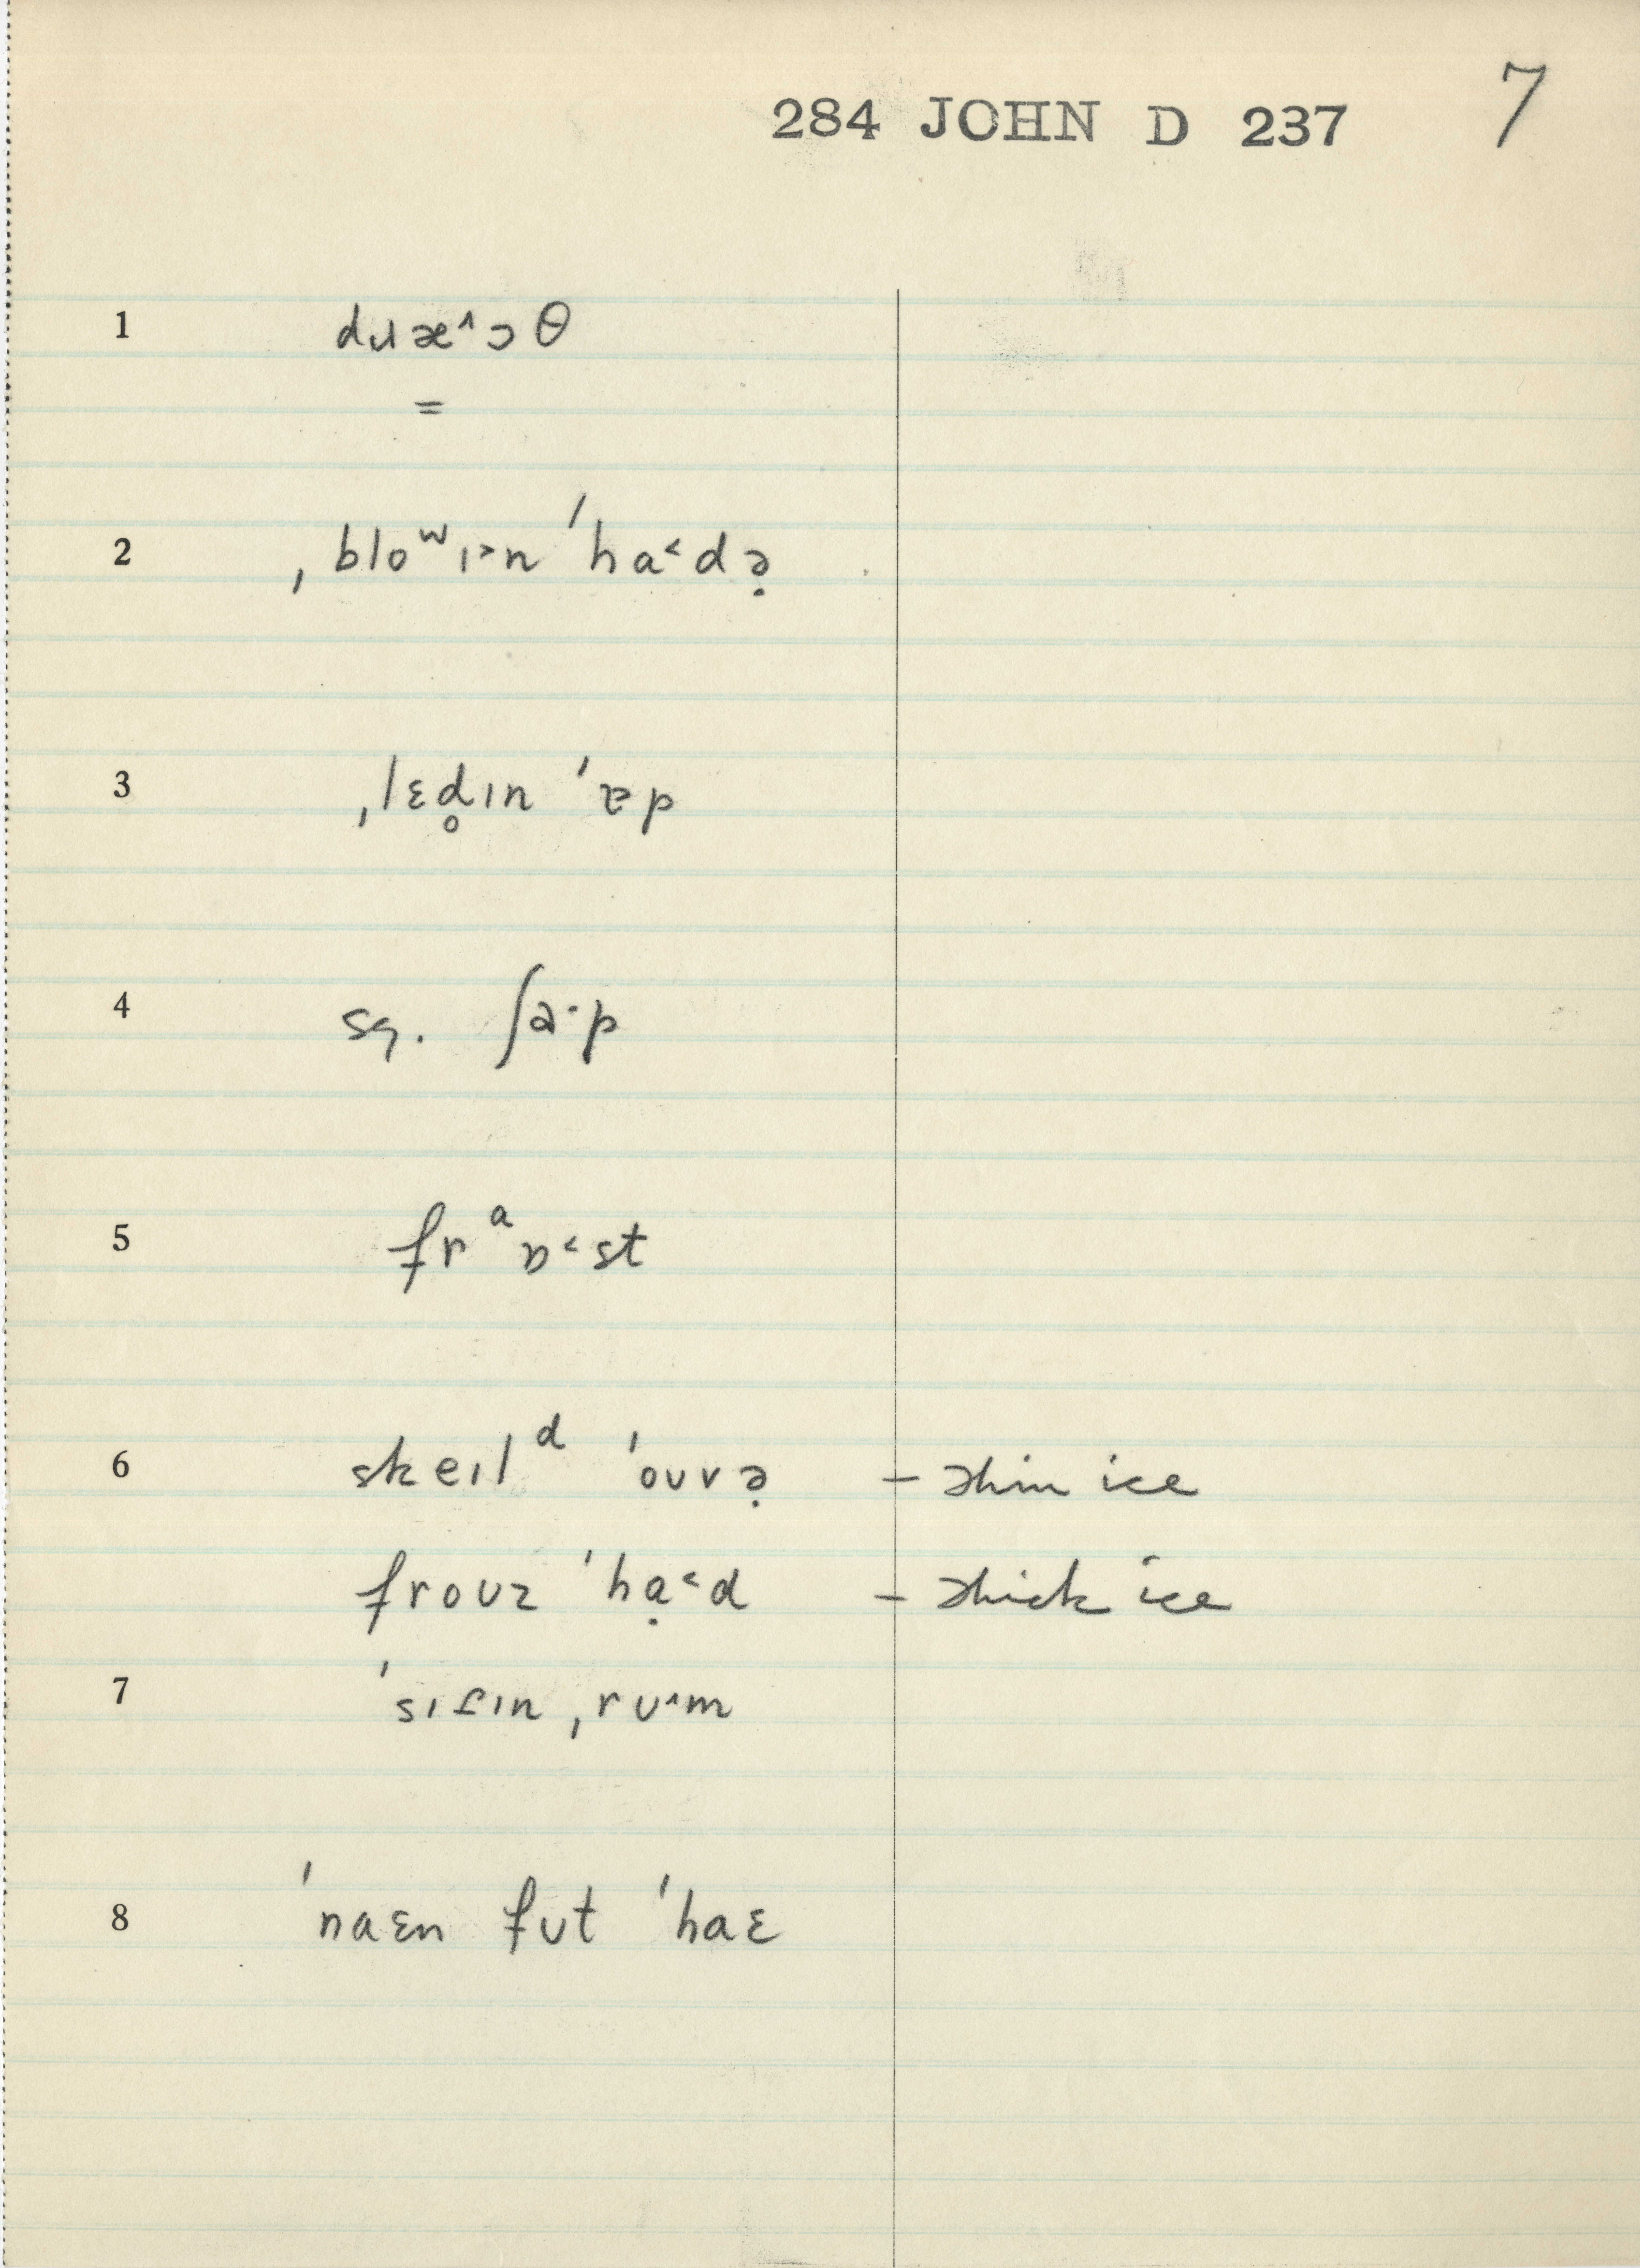 284 JOHN D 237 7
1 dɹæ˄ɔθ
=
2 ˌbloʷɪ˃n ˈha˂də̣
3 ˌlɛd̥ɪn ˈɐp
4 sq. ʃaˑp
5 frᵃɒ˂st
6 skeɪlᵈ ˈoʊvə̣ – thin ice
froʊz ˈhạ˂d – thick ice
7 ˈsɪtɪn ˌrʊ˄m
8 ˈnaɛn fʊt ˈhaɛ